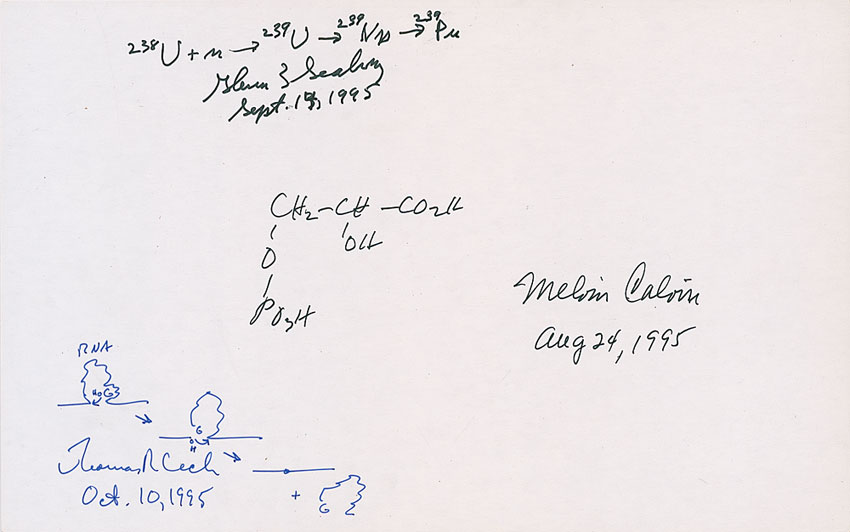 ²³⁸U + n → ²³⁹U → ²³⁹Np → ²³⁹Pu
Glenn T Seaborg
Sept. 18, 1995
CH₂–CH–CO₂H
OH
O
PO₃H
Melvin Calvin
Aug 24, 1995
RNA
HO G
G
O
H
Thomas R Cech
Oct. 10, 1995
+ G